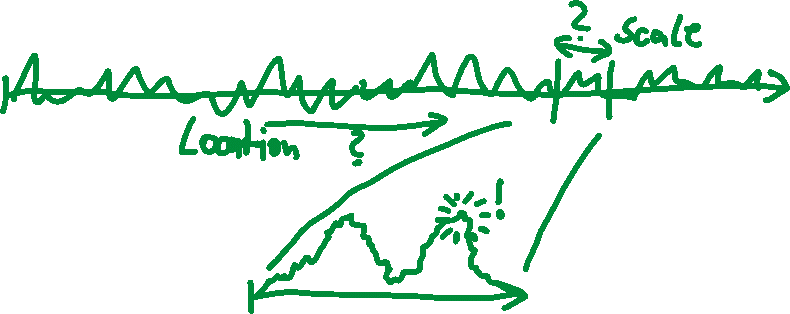 ?
Scale
Location
?
!